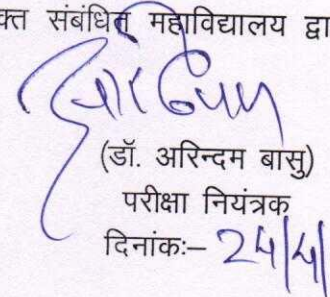 क्त संबंधित महाविद्यालय द्वा
(डॉ. अरिन्दम बासु)
परीक्षा नियंत्रक
दिनांकः–